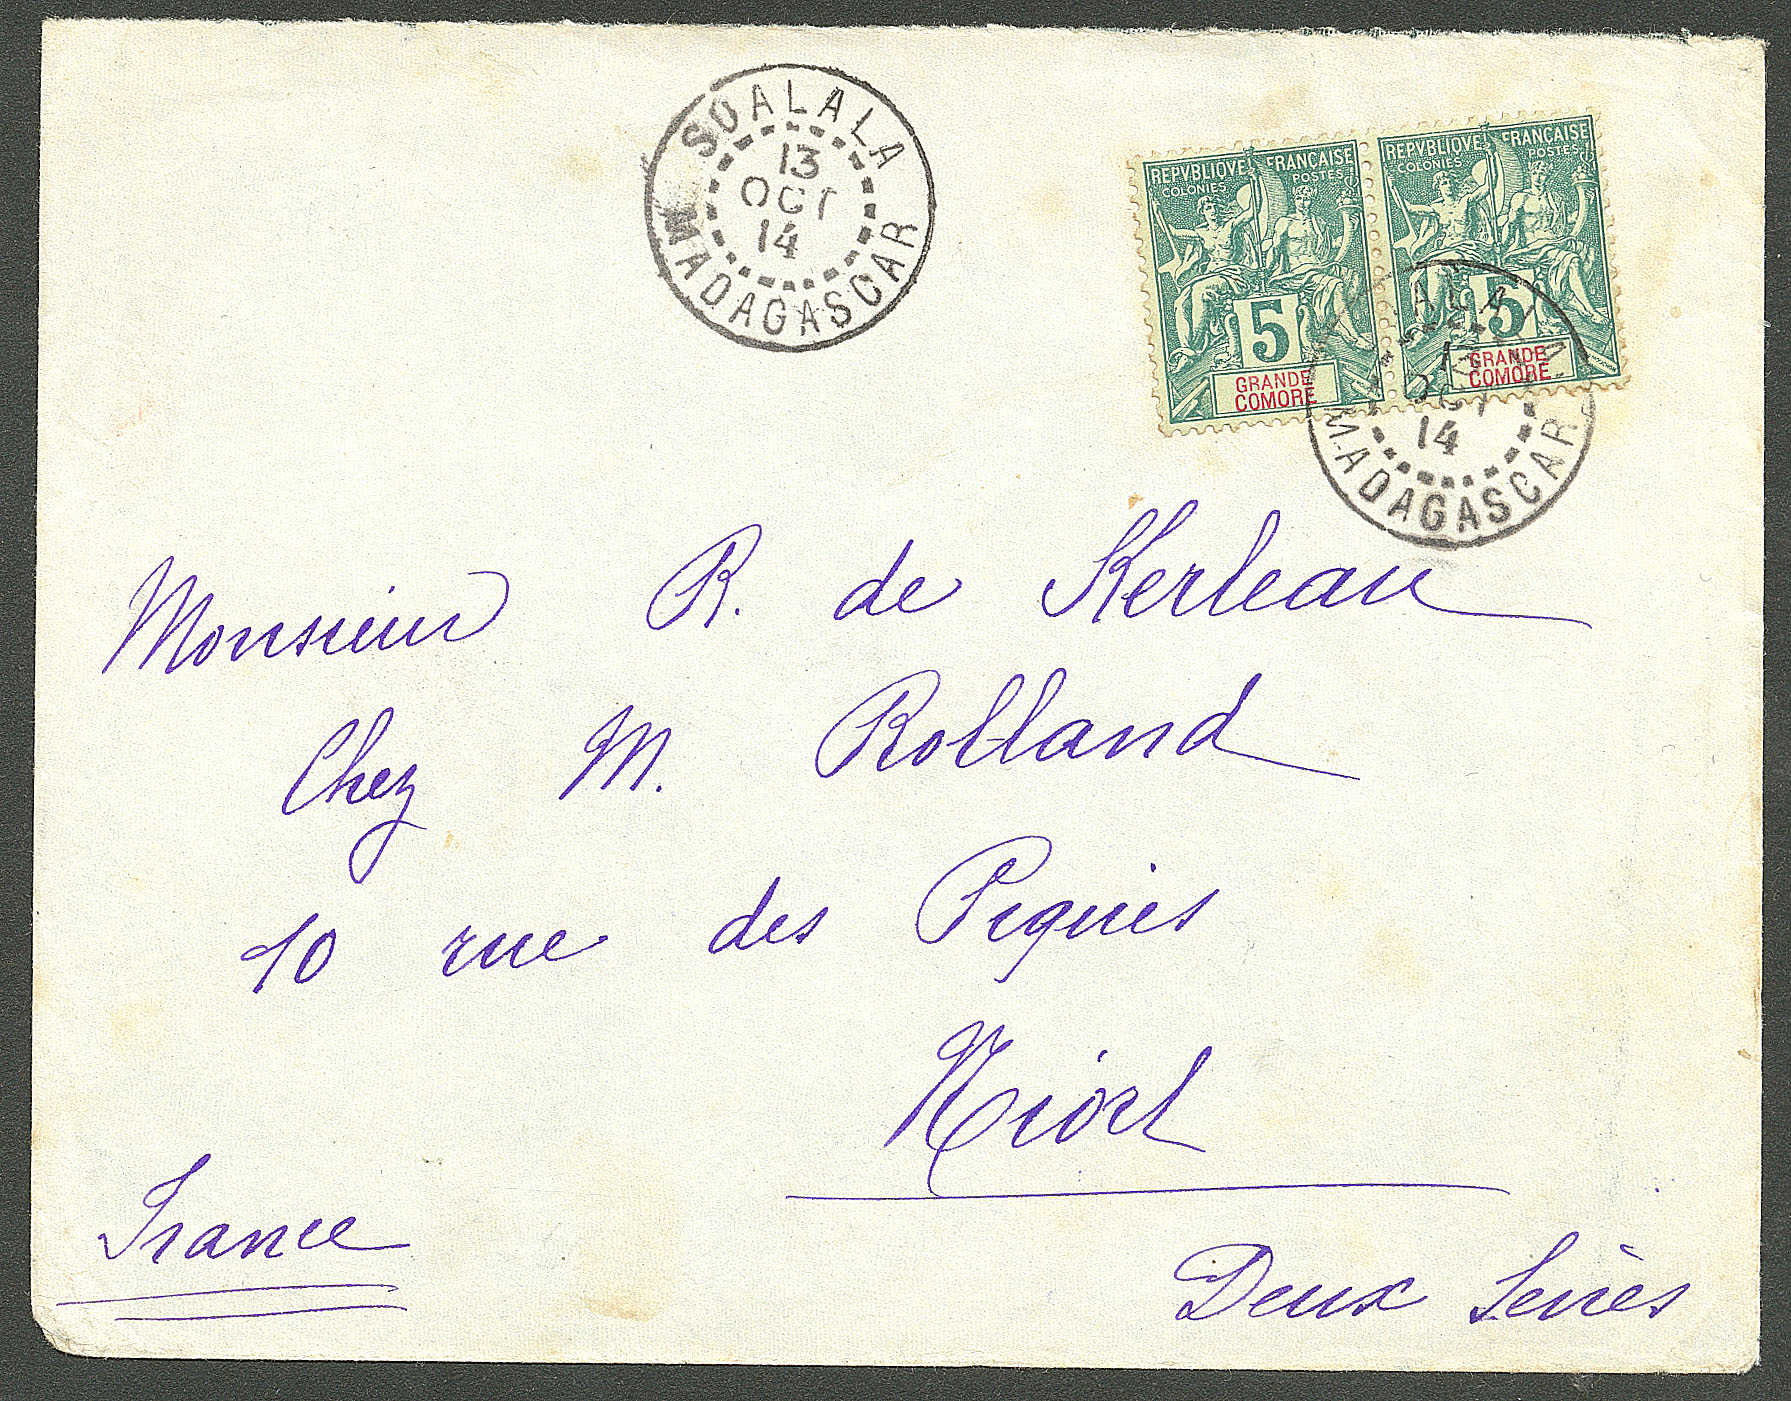 SOALALA
13
OCT
14
MADAGASCAR
REPVBLIQVE FRANÇAISE
COLONIES POSTES
5
GRANDE
COMORE
REPVBLIQVE FRANÇAISE
COLONIES POSTES
5
GRANDE
COMORE
OCT
14
MADAGASCAR
Monsieur R. de Kerleau
Chez M. Rolland
10 rue des Piques
Niort
France
Deux Sevres